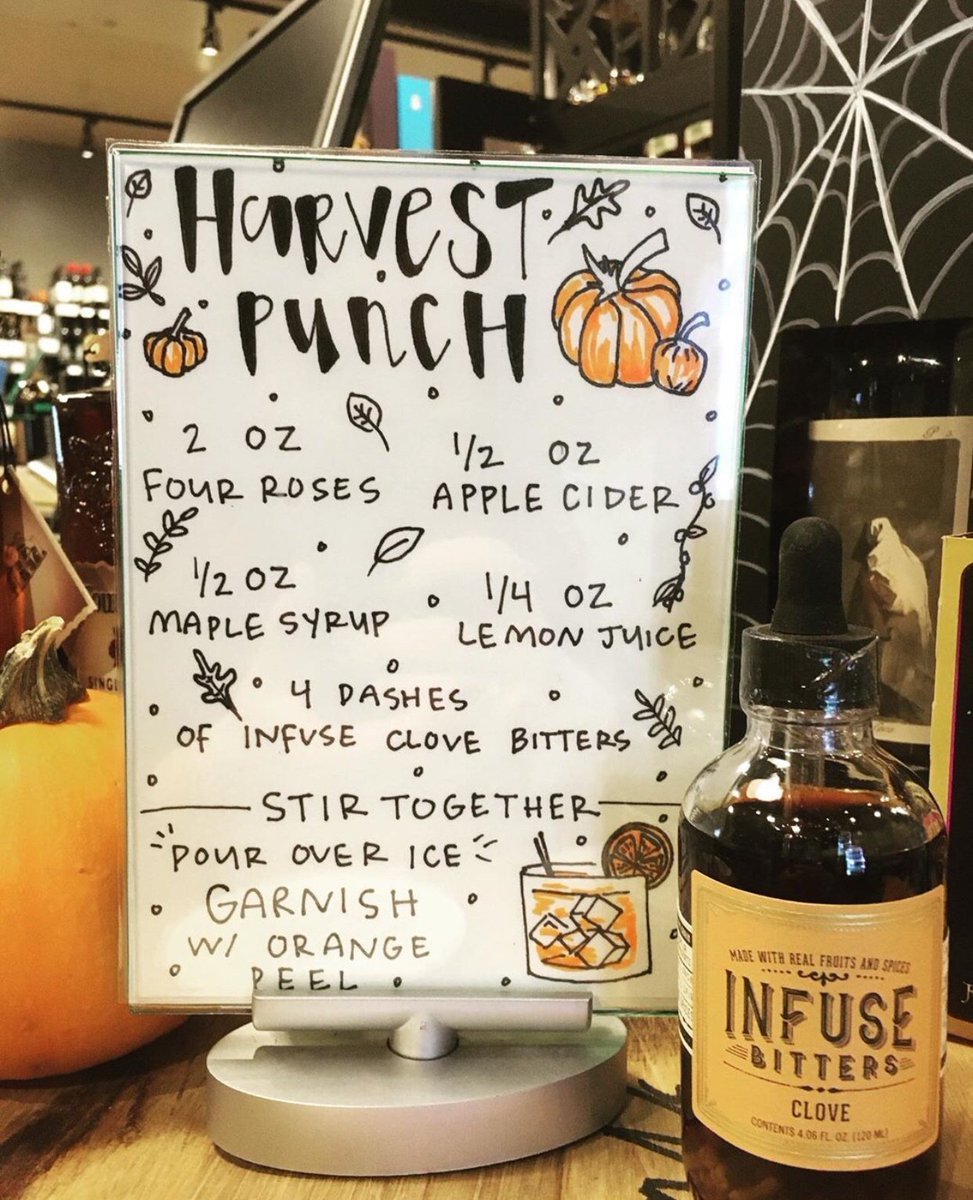 HARVEST
PUNCH
2 OZ
FOUR ROSES
1/2 OZ
APPLE CIDER
1/2 OZ
MAPLE SYRUP
1/4 OZ
LEMON JUICE
4 DASHES
OF INFUSE CLOVE BITTERS
STIR TOGETHER
POUR OVER ICE
GARNISH
W/ ORANGE
PEEL
SINGL
MADE WITH REAL FRUITS AND SPICES
INFUSE
BITTERS
CLOVE
CONTENTS 4.06 FL. OZ. (120 ML)